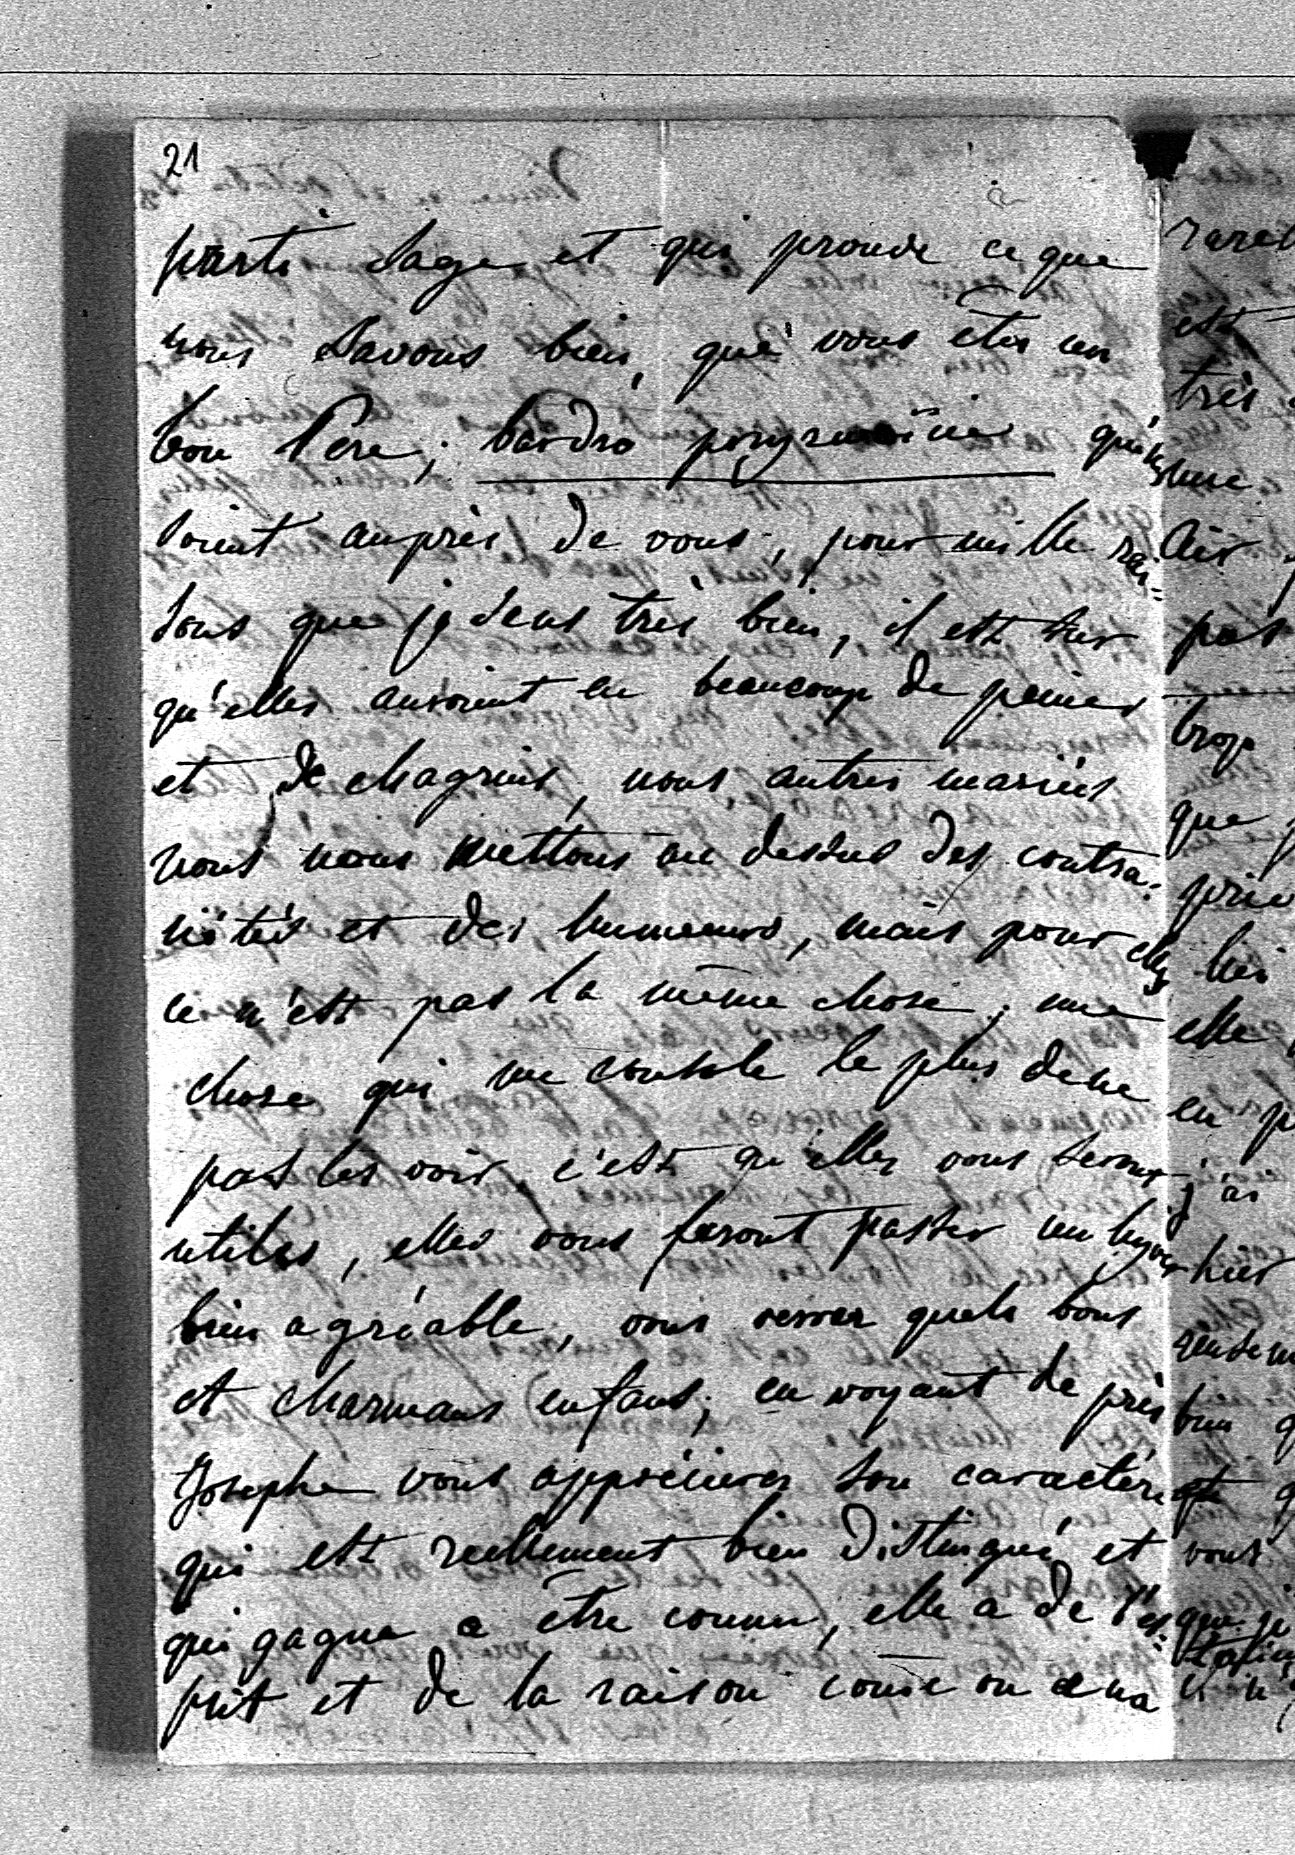 21
parti sage et qui prouve ce que
nous savons bien, que vous êtes un
bon Père; bardzo qu'elles
soient auprès de vous, pour mille rai=
sons que je sens très bien, il est sur
qu'elles auroient eu beaucoup de peines
et de chagrins, nous autres mariées
nous nous mettons au dessus des contra-
riétés et des humeurs, mais pour elles
ce n'est pas la même chose; une
chose qui me console le plus de ne
pas les voir c'est qu'elles vous seront
utiles, elles vous feront passer un hyver
bien agréable, vous verrez quels bons
et charmans enfans; en voyant de près
Josephe vous apprécierez son caractère
qui est reellement bien distingué et
qui gagne a être connu, elle a de l'es=
prit et de la raison come on en a
rare
est
très
une
air
pas
trop
que
prie
lui
elle
en p
j'ai
hier
bien q
vous
que je